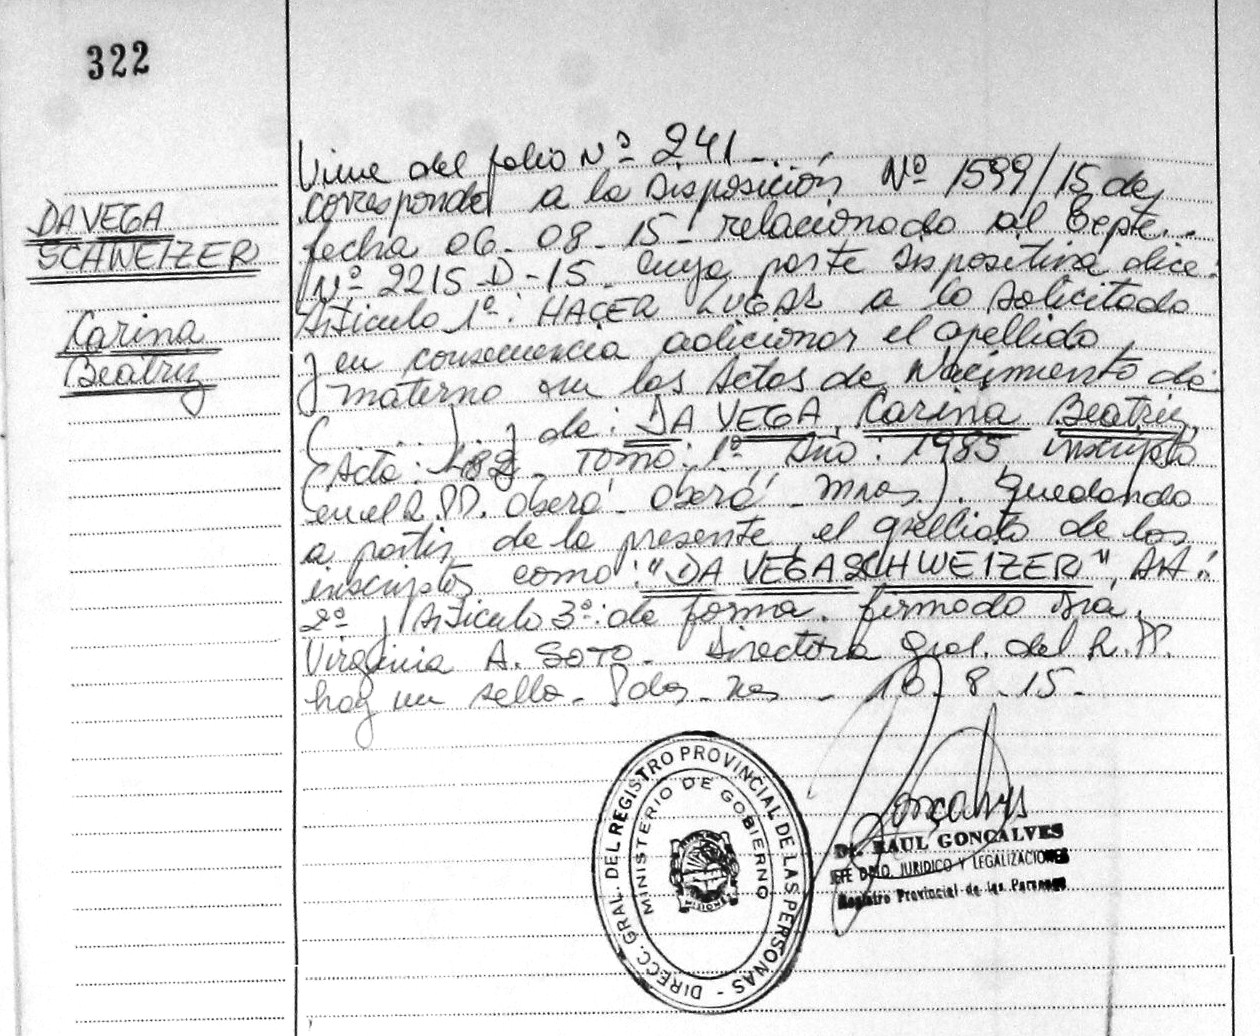 322
DA VEGA
SCHWEIZER
Carina
Beatriz
Viene del folio Nº 241_
corresponde a la Disposición Nº 1599/15 de
fecha 06-08-15_ relacionado al Expte.
Nº 2215-D-15_ cuya parte dispositiva dice:
Artículo 1º: HACER LUGAR a lo solicitado
y en consecuencia adicionar el apellido
materno en las Actas de Nacimiento de
(......) y de: DA VEGA, Carina Beatriz,
(Acta: Tomo: 1º Año: 1985 inscripta
en el R.PP. Oberá Oberá Mnes). Quedando
a partir de la presente el apellido de los
inscriptos como: "DA VEGA SCHWEIZER", Art.
2º y Artículo 3º: de forma. firmado Dra.
Virginia A. SOTO_ Directora Gral. del R.PP.
hay un sello_ Pdas_ Mnes_ 10-8-15_
DIRECC. GRAL. DEL REGISTRO PROVINCIAL DE LAS PERSONAS -
MINISTERIO DE GOBIERNO
Dr. RAUL GONCALVES
JEFE DPTO. JURIDICO Y LEGALIZACIONES
Registro Provincial de las Personas